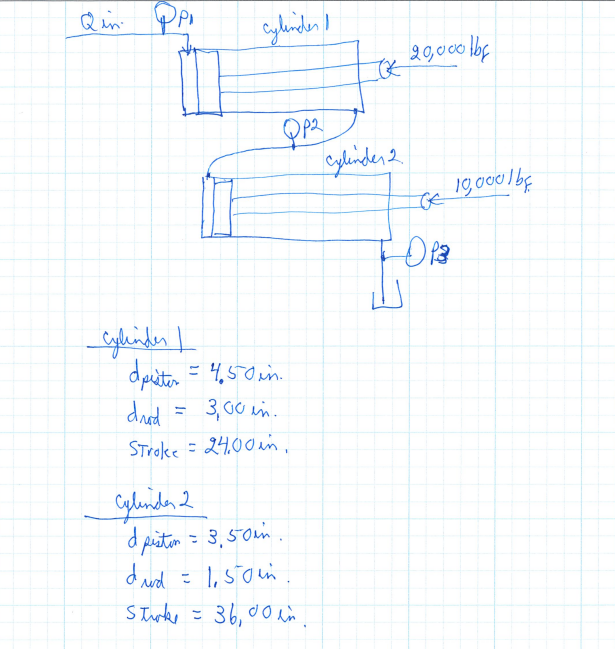 Q in. P1
cylinder 1
20,000 lbf
P2
cylinder 2
10,000 lbf
P3
cylinder 1
dpiston = 4.50 in.
drod = 3.00 in.
Stroke = 24.00 in.
cylinder 2
dpiston = 3.50 in.
drod = 1.50 in.
Stroke = 36.00 in.